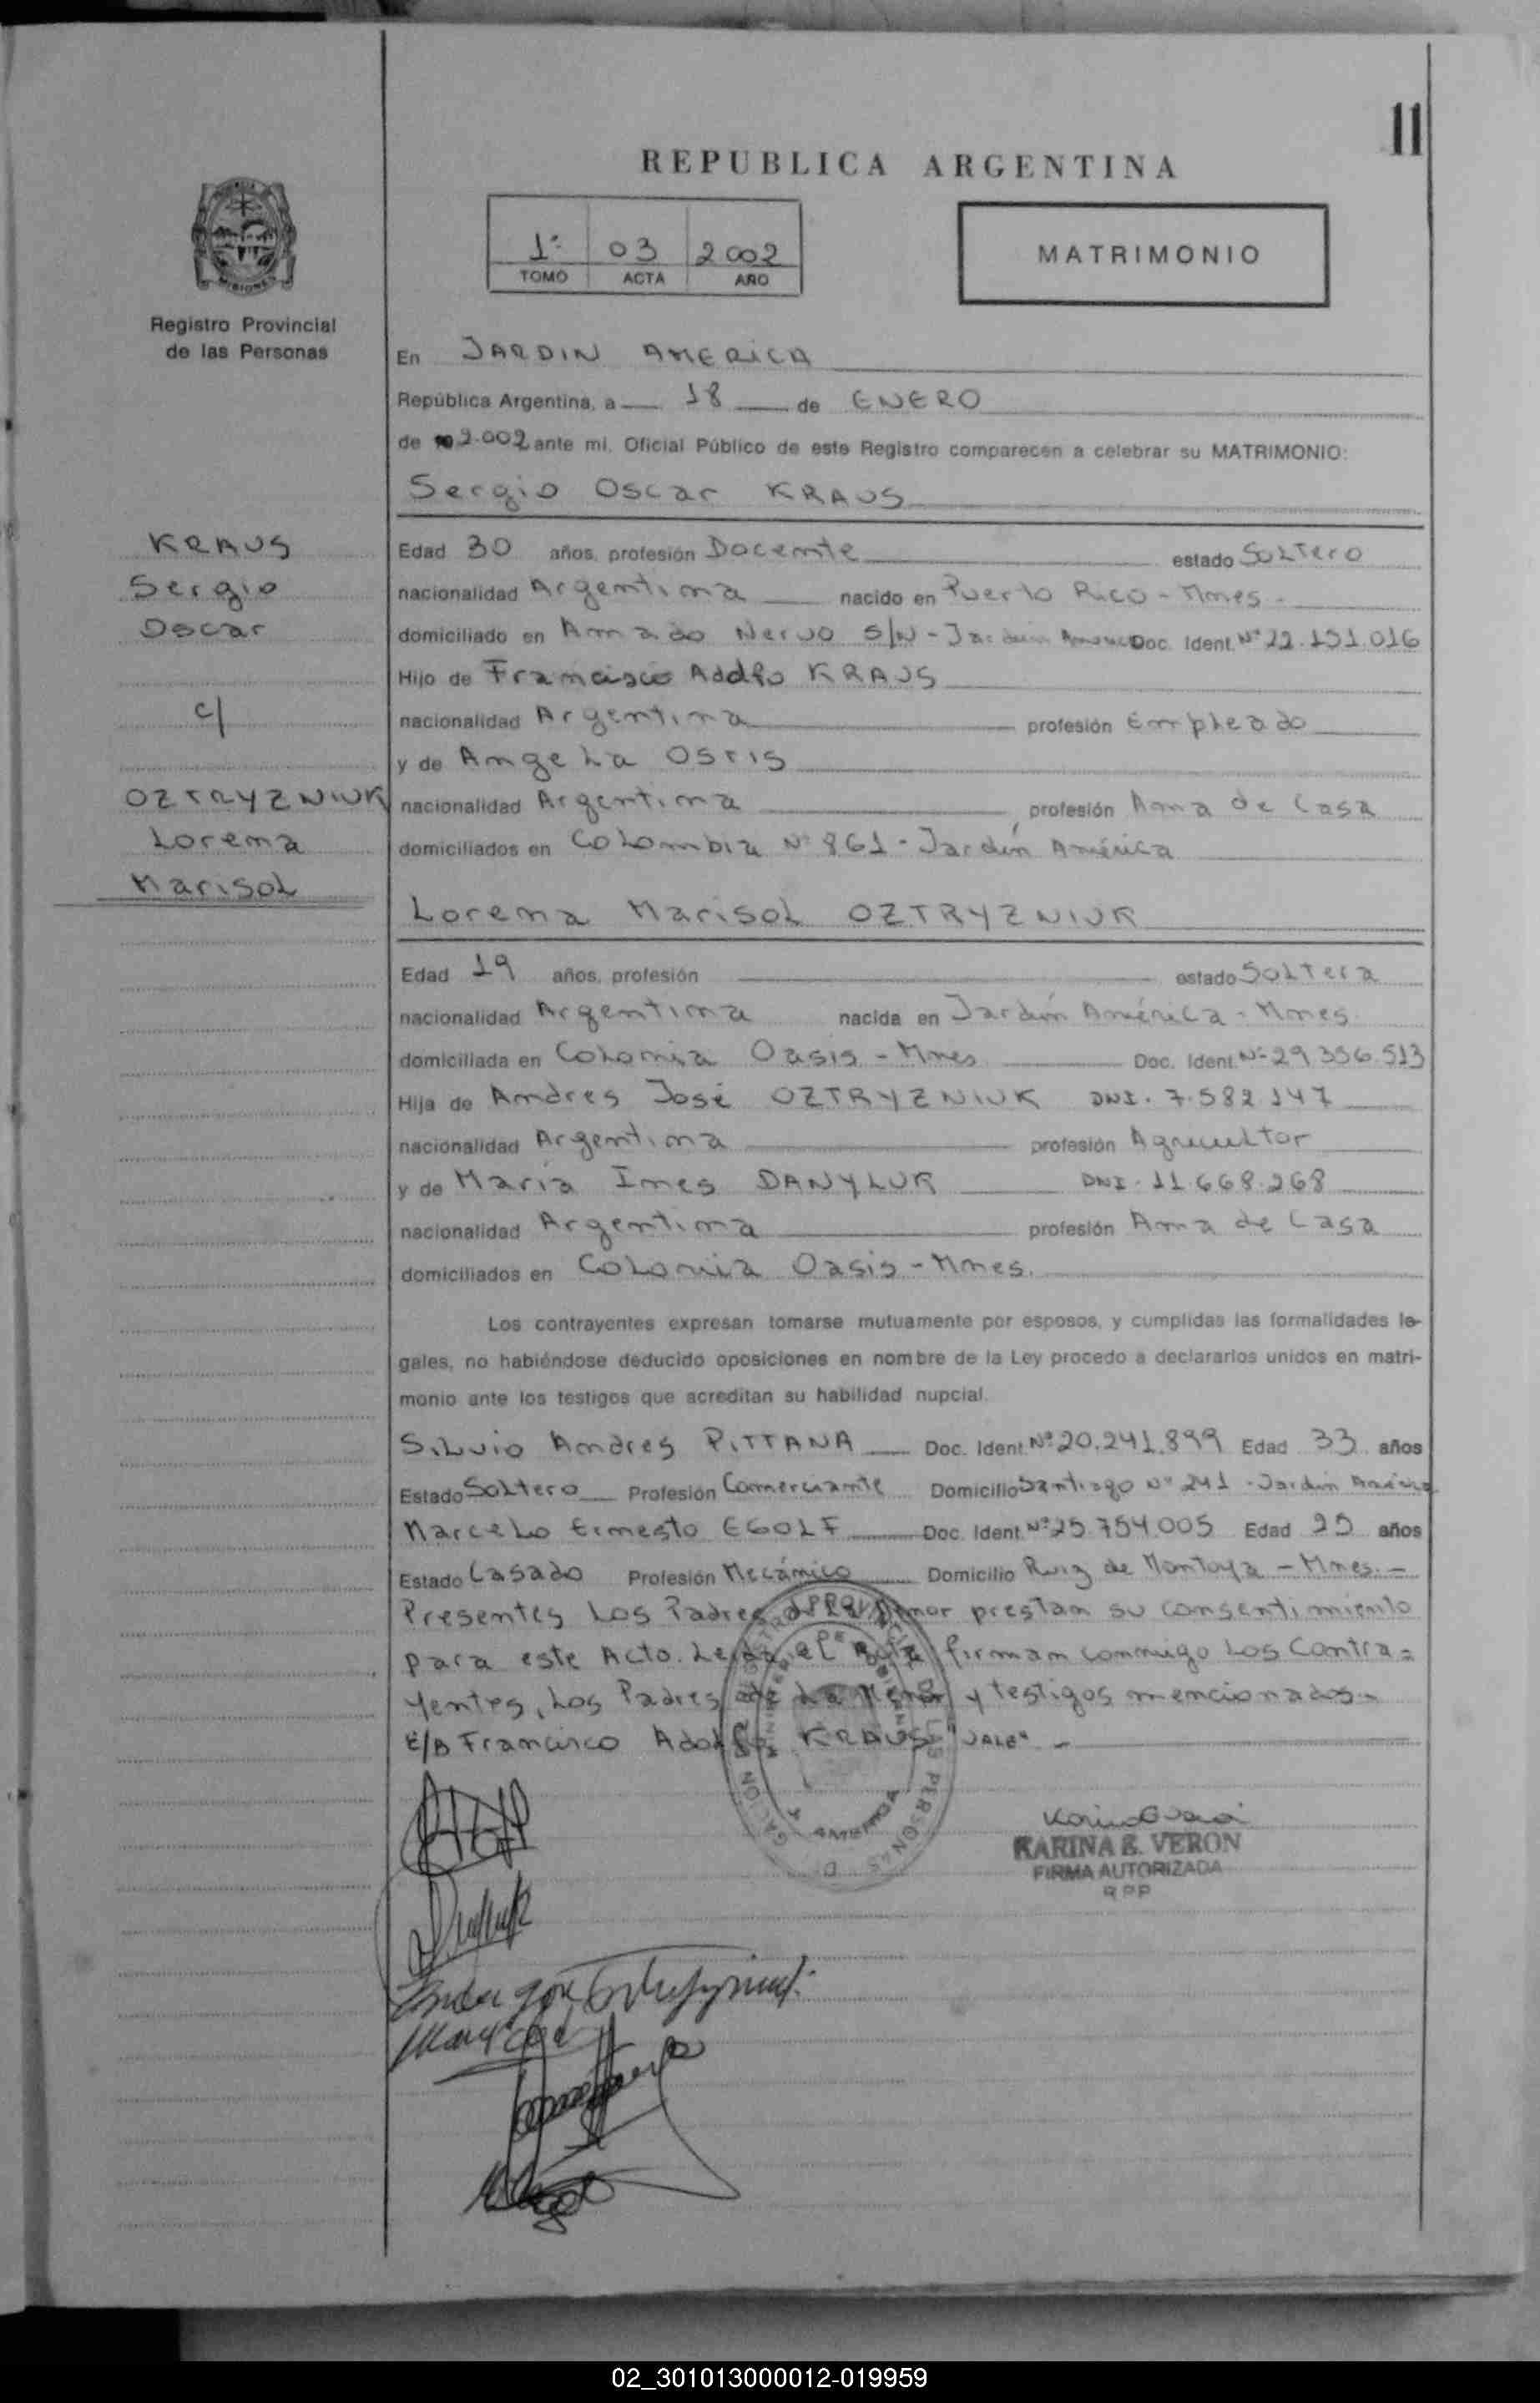 11
REPUBLICA ARGENTINA
1º 03 2002
TOMO ACTA AÑO
MATRIMONIO
Registro Provincial
de las Personas
En JARDIN AMERICA
República Argentina, a 18 de ENERO
de 2.002 ante mi, Oficial Público de este Registro comparecen a celebrar su MATRIMONIO:
Sergio Oscar KRAUS
KRAUS
Sergio
Oscar
c/
OZTRYZNIUK
Lorena
Marisol
Edad 30 años, profesión Docente estado Soltero
nacionalidad Argentina nacido en Puerto Rico - Mnes -
domiciliado en Amado Nervo S/N - Jardin America Doc. Ident. Nº 22.151.016
Hijo de Francisco Adolfo KRAUS
nacionalidad Argentina profesión Empleado
y de Angela OSTIS
nacionalidad Argentina profesión Ama de Casa
domiciliados en Colombia Nº 861 - Jardín América
Lorena Marisol OZTRYZNIUK
Edad 19 años, profesión estado Soltera
nacionalidad Argentina nacida en Jardín América - Mnes.
domiciliada en Colonia Oasis - Mnes Doc. Ident. Nº 29.356.513
Hija de Andres José OZTRYZNIUK DNI. 7.582.147
nacionalidad Argentina profesión Agricultor
y de María Ines DANYLUK DNI. 11.668.268
nacionalidad Argentina profesión Ama de Casa
domiciliados en Colonia Oasis - Mnes.
Los contrayentes expresan tomarse mutuamente por esposos, y cumplidas las formalidades le-
gales, no habiéndose deducido oposiciones en nombre de la Ley procedo a declararlos unidos en matri-
monio ante los testigos que acreditan su habilidad nupcial.
Silvio Andres PITTANA Doc. Ident. Nº 20.241.899 Edad 33 años
Estado Soltero Profesión Comerciante Domicilio Santiago Nº 241 - Jardín América
Marcelo Ernesto EGOLF Doc. Ident. Nº 25.754.005 Edad 25 años
Estado Casado Profesión Mecánico Domicilio Ruiz de Montoya - Mnes. -
Presentes Los Padres de La Menor prestan su consentimiento
para este Acto. Leída el Acta firman conmigo Los Contra=
yentes, Los Padres de La Menor y testigos mencionados.-
E/B Francisco Adolfo KRAUS "VALE" -
KARINA E. VERON
FIRMA AUTORIZADA
RPP
02_301013000012-019959